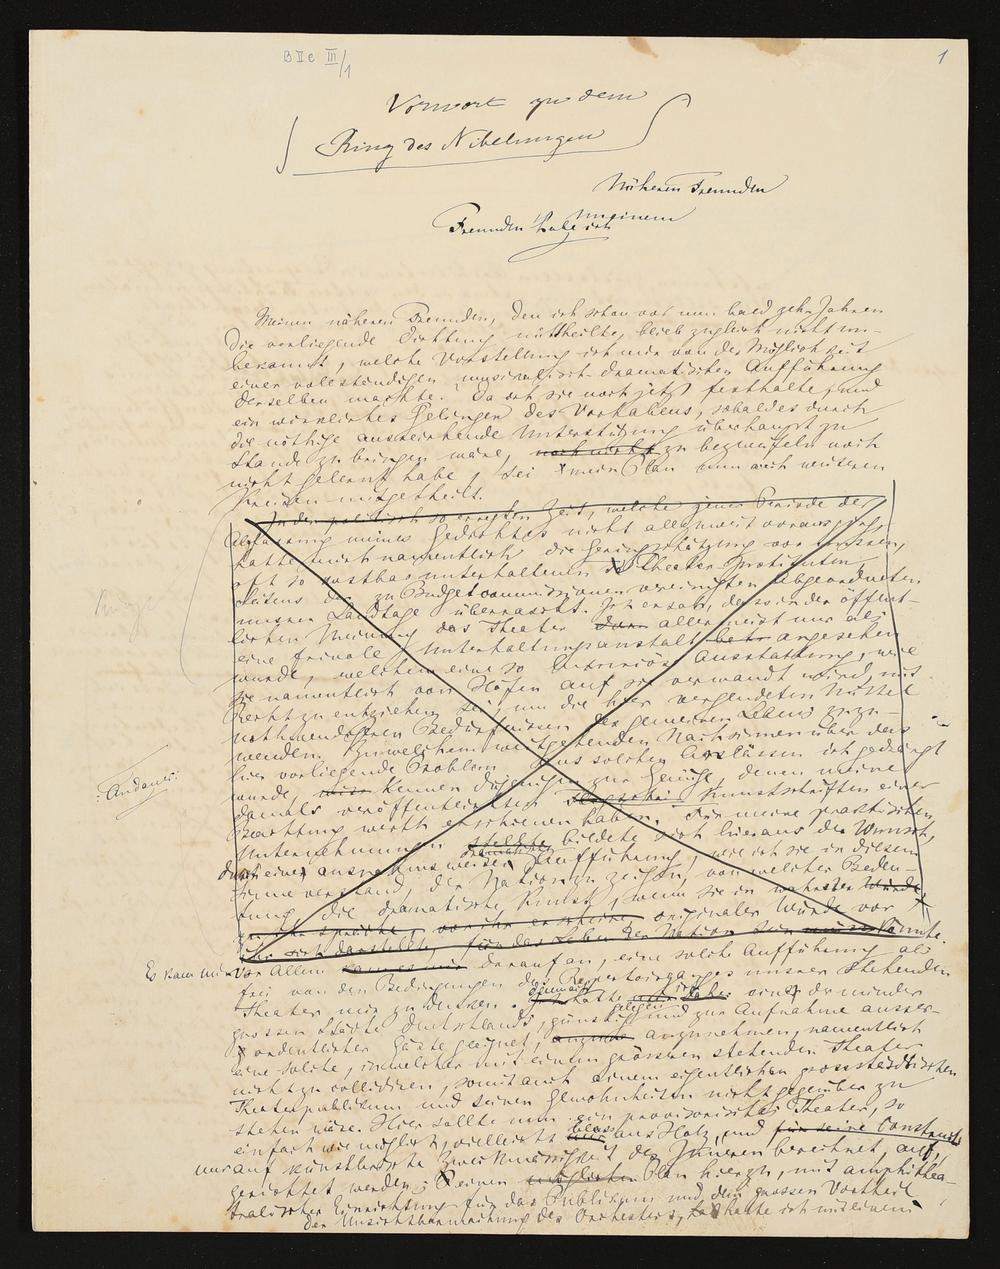 B II c III/1
1
Vorwort zu dem
Ring des Nibelungen
Näheren Freunden
meinem
Freunden habe ich
Meinen näheren Freunden, den ich schon vor nun bald zehn Jahren
die vorliegende Dichtung mittheilte, blieb zugleich nicht un-
bekannt, welche Vorstellung ich mir von der Möglichkeit
einer vollständigen musikalisch-dramatischen Aufführung
derselben machte. Da ich sie noch jetzt festhalte, und
ein wirkliches Gelingen des Vorhabens, sobald es durch
die nöthige ausreichende Unterstützung überhaupt zu
Stande zu bringen wäre, noch nicht zu bezweifeln noch
nicht gelernt habe, sei mein Plan nun auch weiteren
Kreisen mitgetheilt.
In der politisch so erregten Zeit, welche jener Periode der
Abfassung meines Gedichtes nicht allzuweit voraus
hatte mich namentlich die Geringschätzung von
oft so kostbar unterhaltenen Theater-Instituten,
Seitens der zu Budgetcommissionen vereinigten Abgeordneten
unsrer Landtage überrascht. Ich ersah, dass in der öffent-
lichen Meinung das Theater dann allermeist nur als
eine frivole Unterhaltungsanstalt angesehen
wurde, welchem eine so luxuriöse Ausstattung, wie
sie namentlich von Höfen auf sie verwandt wird, mit
Recht zu entziehen sei, um die hier vergeudeten Mittel
nothwendigeren Bedürfnissen des gemeinen Lebens zuzu-
wenden. Zu welchem weitgehenden Nachsinnen über das
hier vorliegende Problem aus solchen Anlässen ich gedrängt
wurde, kennen diejenigen zur Genüge, denen meine
damals veröffentlichten Kunstschriften einer
Beachtung werth erschienen haben. Für meine praktischen
Unternehmungen stellte bildete sich hieraus der Wunsch,
durch eine ausnahmsweise Aufführung, wie ich sie in diesem
Sinne verstand, der Nation zu zeigen, von welcher Bedeu-
tung die dramatische Kunst, wenn sie in wahrster Würde
originaler Würde vor
ihr sich darstellte, für das Leben der Nation sein könnte.
Andante:
Es kam mir vor Allem darauf an, eine solche Aufführung als
frei von den Bedingungen des Repertoirganges unsrer stehenden
Theater mir zu denken. Demnach hatte ich eine der minder
grossen Städte Deutschlands, günstig gelegen und zur Aufnahme ausser-
ordentlicher Gäste geeignet, anzunehmen, namentlich
eine solche, in welcher mit einem grösseren stehenden Theater
nicht zu collidiren, somit auch einem eigentlichen grossstädtischen
Theaterpublikum und seinen Gewohnheiten nicht gegenüber zu
stehen wäre. Hier sollte nun ein provisorisches Theater, so
einfach wie möglich, vielleicht bloss aus Holz, und für seine Construct
nur auf künstlerische Zweckmässigkeit des Inneren berechnet, auf-
gerichtet werden; einen Plan hierzu, mit amphithea-
tralischer Einrichtung für das Publikum und dem grossen Vortheil
der Unsichtbarmachung des Orchesters, hatte ich mit einem